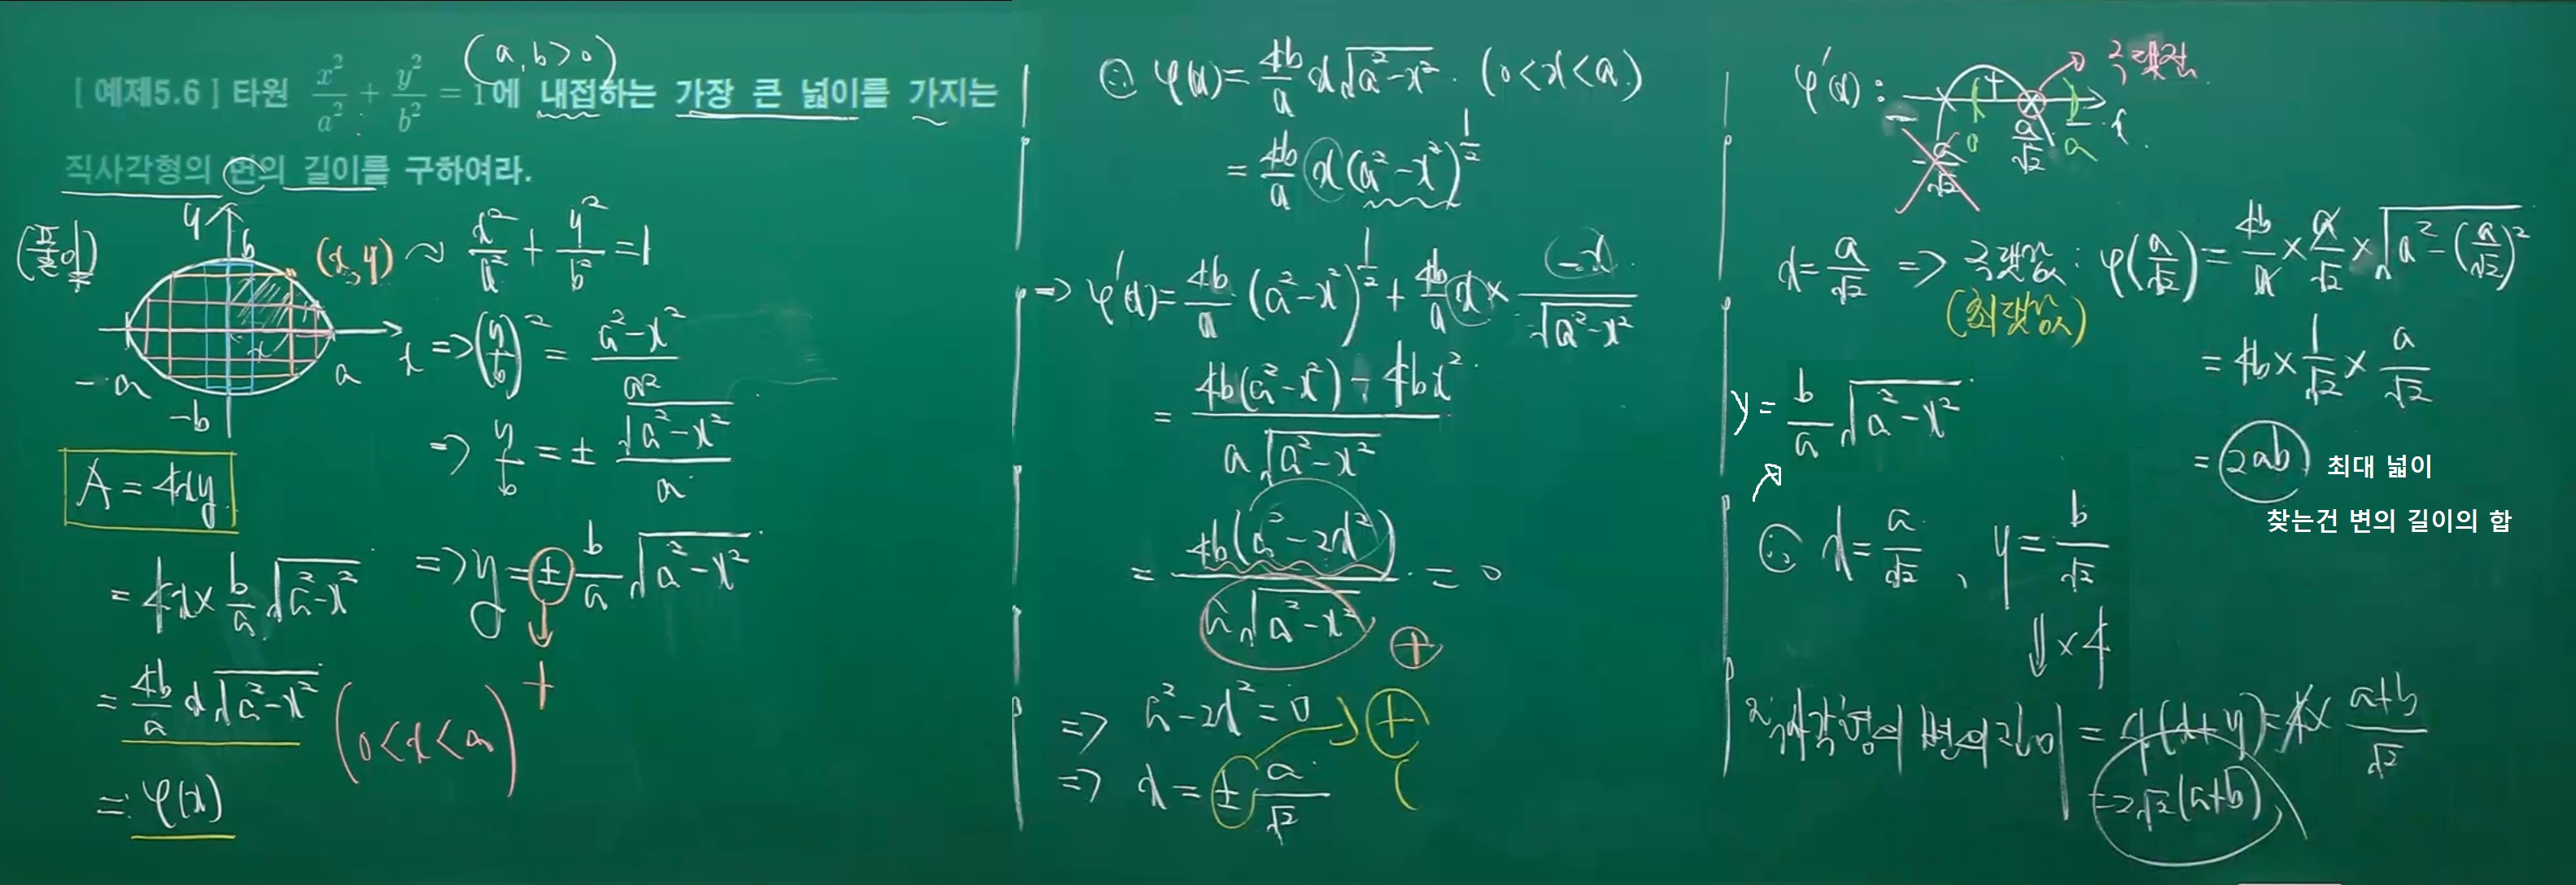 (a, b > 0)
[ 예제5.6 ] 타원 x²/a² + y²/b² = 1에 내접하는 가장 큰 넓이를 가지는
직사각형의 변의 길이를 구하여라.
y
b
(x, y) ~ x²/a² + y²/b² = 1
-a
a
x
-b
=> (y/b)² = (a²-x²)/a²
=> y/b = ± √(a²-x²)/a
=> y = ± b/a √(a²-x²)
+
A = 4xy
= 4x × b/a √(a²-x²)
= 4b/a x √(a²-x²) (0<x<a)
=: φ(x)
∴ φ(x) = 4b/a x √(a²-x²) . (0<x<a)
= 4b/a x (a²-x²)^(1/2)
=> φ'(x) = 4b/a (a²-x²)^(1/2) + 4b/a x × (-x)/√(a²-x²)
= (4b(a²-x²) - 4bx²)/(a√(a²-x²))
= 4b(a²-2x²)/(a√(a²-x²)) = 0
+
=> a²-2x² = 0 +
=> x = ± a/√2
φ'(x) : + 극댓점
- -a/√2 0 a/√2 - a x
x = a/√2 => 극댓값 : φ(a/√2) = 4b/a × a/√2 × √(a² - (a/√2)²)
(최댓값)
= 4b × 1/√2 × a/√2
= 2ab 최대 넓이
찾는건 변의 길이의 합
y = b/a √(a²-x²)
∴ x = a/√2 , y = b/√2
⇓ ×4
직사각형의 변의 길이 = 4(x+y) = 4 × (a+b)/√2
= 2√2(a+b)